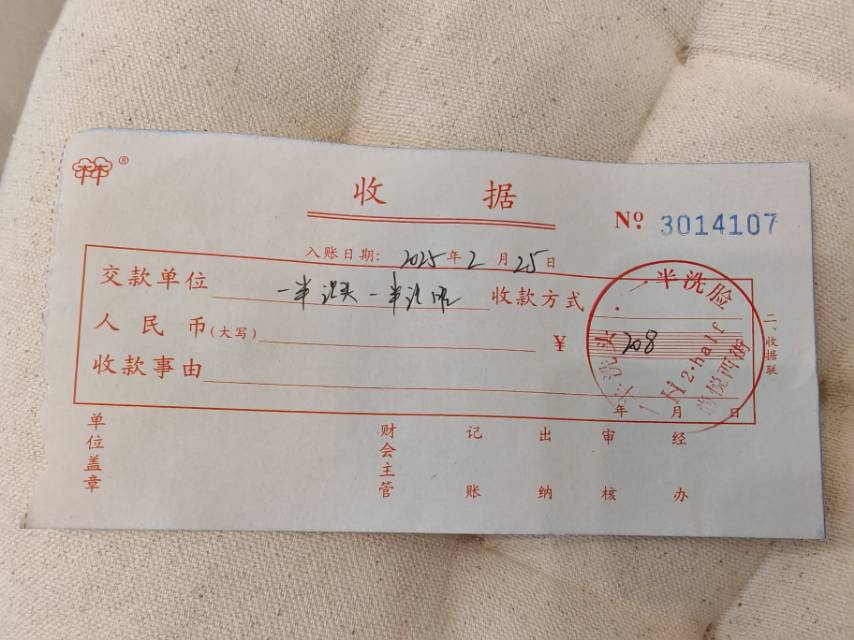 ®
收 据
Nº 3014107
入账日期: 2025年2月25日
交款单位 一半洗头一半洗脸 收款方式
人民币(大写) ¥ 208
收款事由
二、收据联
一半洗脸
洗头
Hi2·half
悦西街
年 月 日
单位盖章 财会主管 记账 出纳 审核 经办